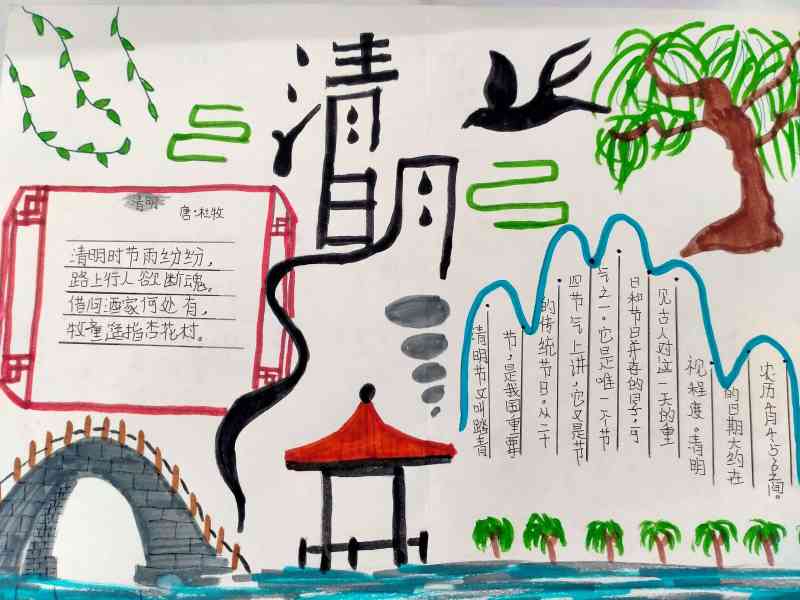 清明
清明
唐·杜牧
清明时节雨纷纷，
路上行人欲断魂。
借问酒家何处有，
牧童遥指杏花村。
清明节又叫踏青
节，是我国重要
的传统节日。从二十
四节气上讲，它又是节
气之一。它是唯一个节
日和节日并喜的日子，可
见古人对这一天的重
视程度。清明
的日期大约在
农历4月4 5 6之间。